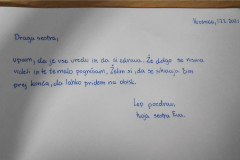 Draga sestra,
upam, da je vse v redu in da si zdrava. Že dolgo se nisva
videli in te že malo pogrešam. Želim si, da se situacija čim
prej konča, da lahko pridem na obisk.
Lep pozdrav,
tvoja sestra Eva.